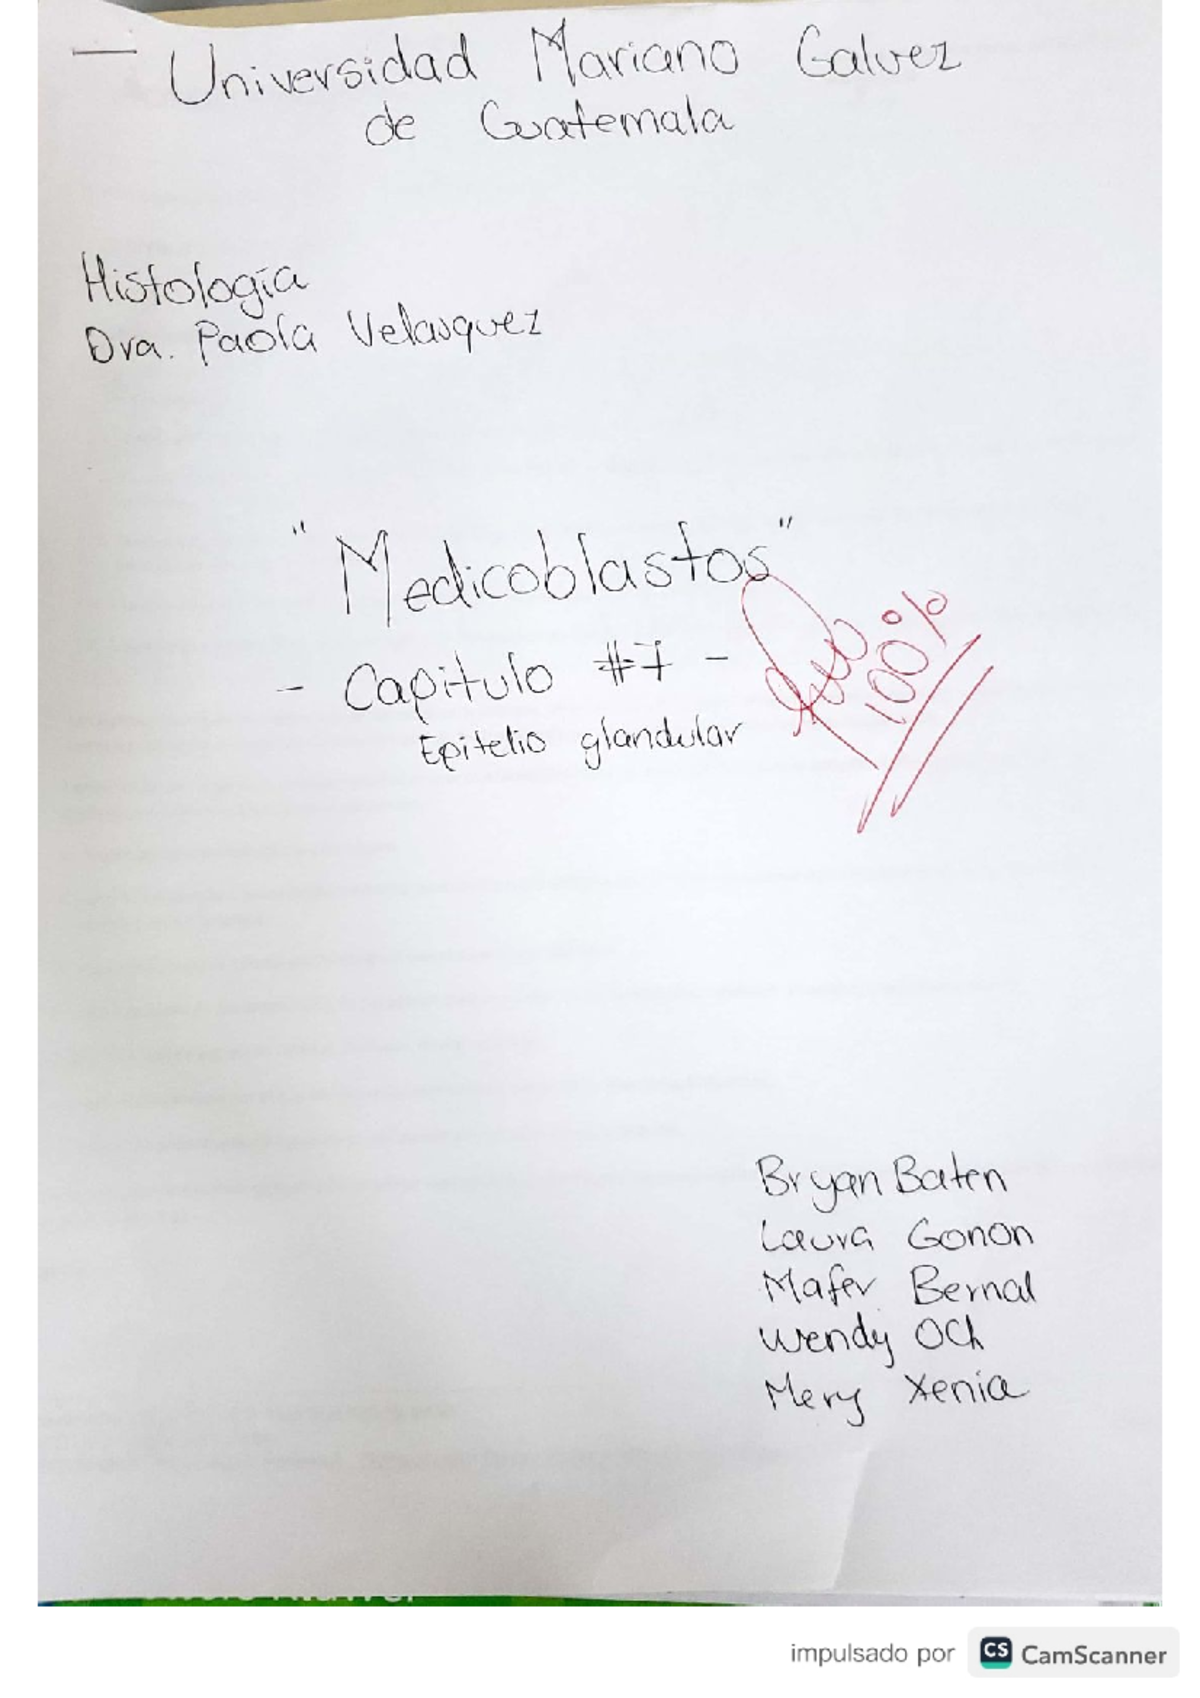 Universidad Mariano Galvez
de Guatemala
Histología
Dra. Paola Velasquez
"Medicoblastos"
- Capitulo #7 -
Epitelio glandular
100%
Bryan Baten
Laura Gonon
Mafer Bernal
Wendy Och
Mery Xenia
impulsado por CS CamScanner